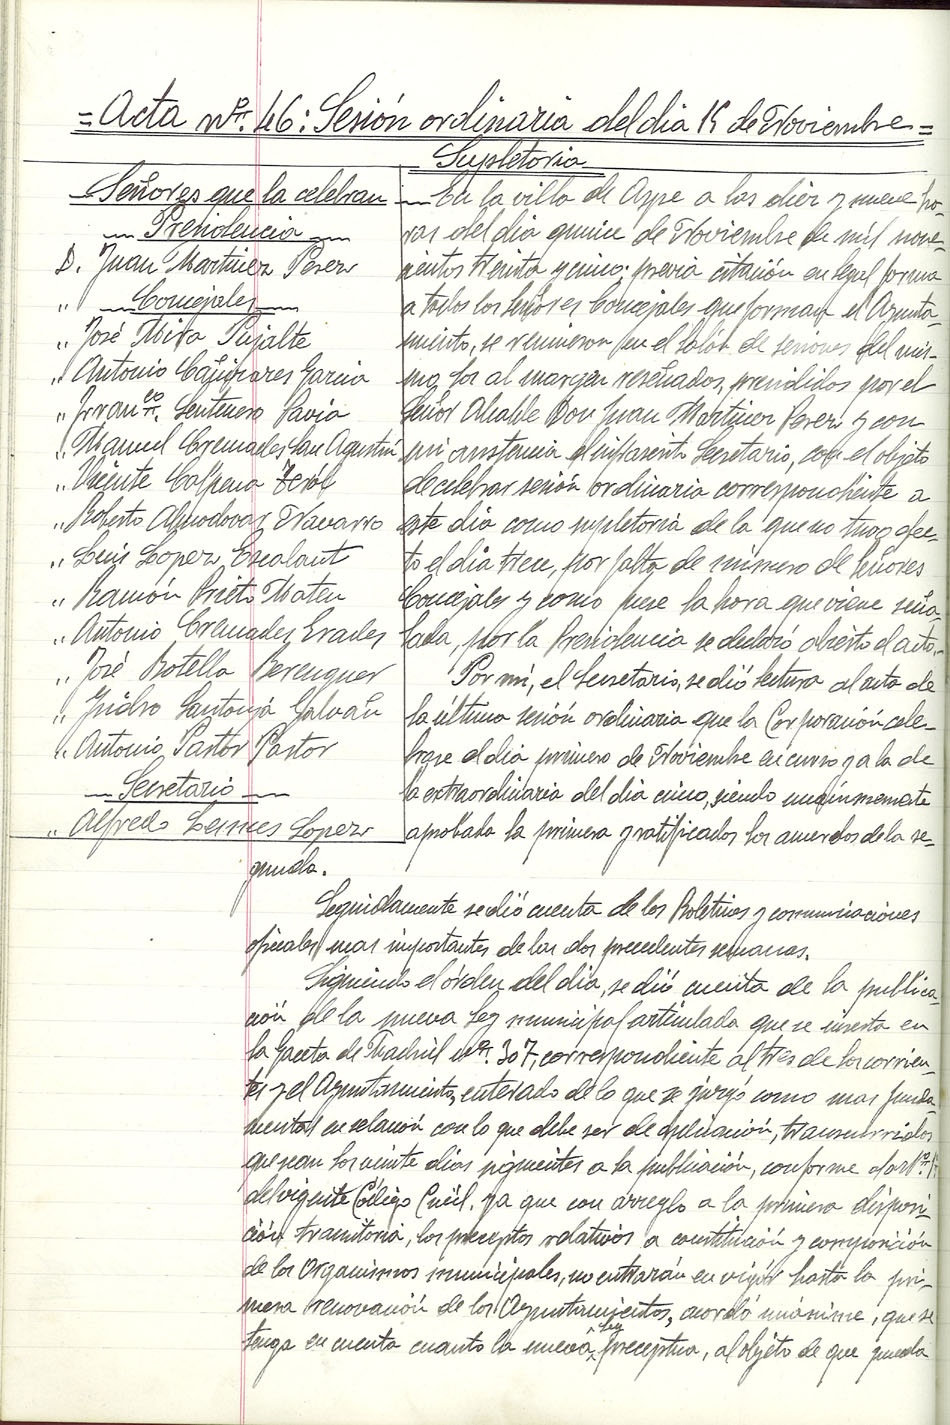 =Acta nº. 46: Sesión ordinaria del dia 15 de Noviembre=
Supletoria
Señores que la celebran
Presidencia
D. Juan Martinez Perez
" Concejales
" José Mira Pujalte
" Antonio Cañizares Garcia
" Francº. Sentenero Pavia
" Manuel Cremades San Agustin
" Vicente Calpena Terol
" Roberto Almodovar Navarro
" Luis Lopez Escalant
" Ramón Prieto Mateu
" Antonio Cremades Erades
" José Botella Berenguer
" Isidro Santonja Galvañ
" Antonio Pastor Pastor
Secretario
" Alfredo Lesmes Lopez
En la villa de Aspe a las diez y nueve ho-
ras del dia quince de Noviembre de mil nove-
cientos treinta y cinco; previa citación en legal forma
a todos los señores Concejales que forman el Ayunta-
miento, se reunieron en el salón de sesiones del mis-
mo, los al margen reseñados, presididos por el
Señor Alcalde Don Juan Martinez Perez y con
mi asistencia el infrascrito Secretario, con el objeto
de celebrar sesión ordinaria correspondiente a
este dia como supletoria de la que no tuvo efec-
to el dia trece, por falta de número de señores
Concejales y como fuese la hora que viene seña-
lada, por la Presidencia se declaró abierto el acto.-
Por mi, el Secretario, se dió lectura al acta de
la última sesión ordinaria que la Corporación cele-
brase el dia primero de Noviembre en curso y a la de
la extraordinaria del dia cinco, siendo unánimemente
aprobada la primera y ratificados los acuerdos de la se-
gunda.
Seguidamente se dió cuenta de los Boletines y comunicaciones
oficiales mas importantes de las dos precedentes semanas.
Siguiendo el órden del dia, se dió cuenta de la publica-
ción de la nueva Ley municipal articulada que se inserta en
la Gaceta de Madrid nº. 307, correspondiente al tres de los corrien-
tes y el Ayuntamiento, enterado de lo que se juzgó como mas funda-
mental en relación con lo que debe ser de aplicación, transcurridos
que sean los veinte dias siguientes a la publicación, conforme al artº. 1º
del vigente Código Civil, ya que con arreglo a la primera disposi-
ción transitoria, los preceptos relativos a constitución y composición
de los Organismos municipales, no entrarán en vigór hasta la pri-
mera renovación de los Ayuntamientos, acordó unánime, que se
tenga en cuenta cuanto la nueva ley preceptua, al objeto de que pueda